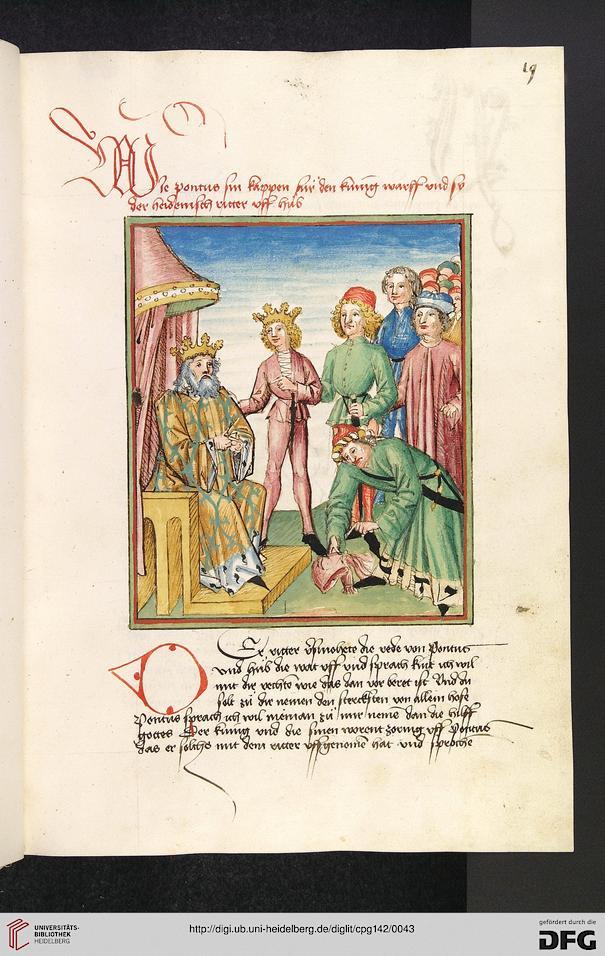 19
Wie pontus sin kappen für den kunig warff vnd sy
der heidenisch ritter vff hůb
Der ritter die rede von Pontus
vnd hůb die wat vff vnd sprach kint ich wil
mit dir vechte wie das dan vor beret ist Vnd du
solt zů dir nemen den stercksten von allem hofe
Pontus sprach ich wil nieman zů mir neme dan die hilff
gottes Der kunig vnd die sinen worent zornig vff Pontus
das er solichs mit dem ritter vffgenome hat vnd sproche
UNIVERSITÄTS-
BIBLIOTHEK
HEIDELBERG
http://digi.ub.uni-heidelberg.de/diglit/cpg142/0043
gefördert durch die
DFG